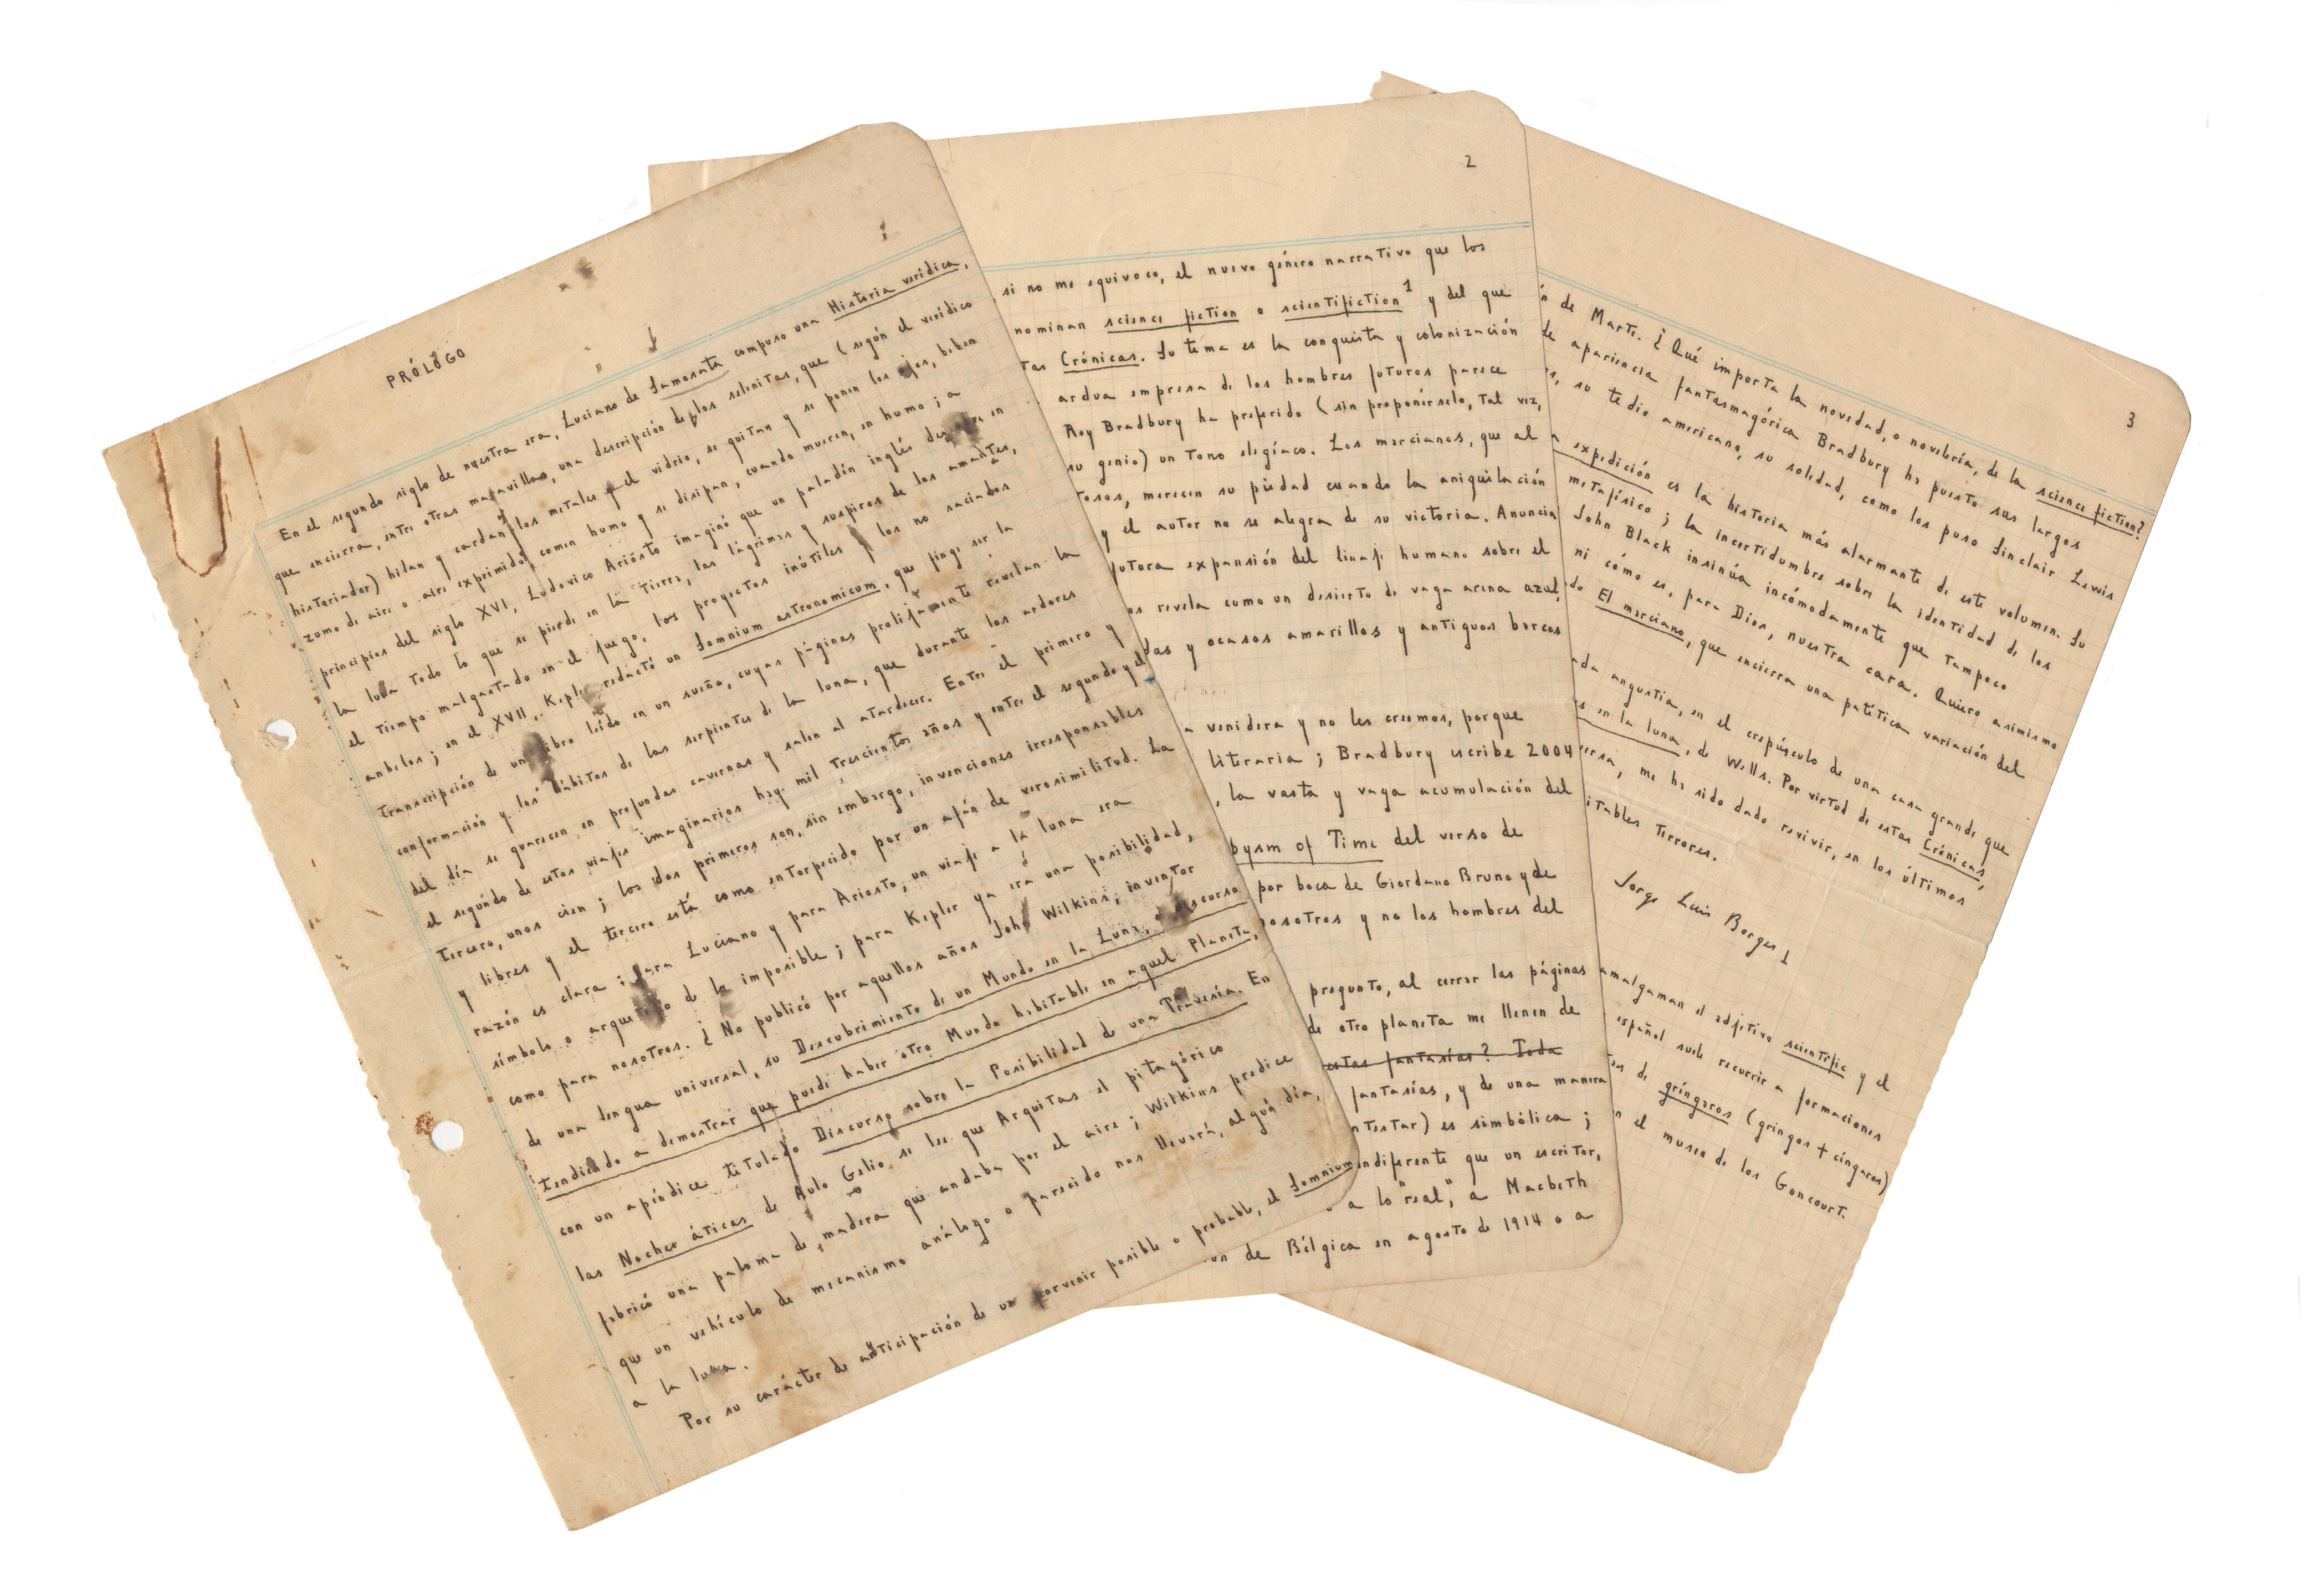 PRÓLOGO
En el segundo siglo de nuestra era, Luciano de Samosata compuso una Historia verídica,
que encierra, entre otras maravillas, una descripción de los selenitas, que (según el verídico
historiador) hilan y cardan los metales y el vidrio, se quitan y se ponen los ojos, beben
zumo de aire o aire exprimido, comen humo y se disipan, cuando mueren, en humo; a
principios del siglo XVI, Ludovico Ariosto imaginó que un paladín inglés descubre en
la luna todo lo que se pierde en la Tierra, las lágrimas y suspiros de los amantes,
el tiempo malgastado en el juego, los proyectos inútiles y los no saciados
anhelos; en el XVII, Kepler redactó un Somnium astronomicum, que finge ser la
transcripción de un libro leído en un sueño, cuyas páginas prolijamente revelan la
conformación y los hábitos de las serpientes de la luna, que durante los ardores
del día se guarecen en profundas cavernas y salen al atardecer. Entre el primero y
el segundo de estos viajes imaginarios hay mil trescientos años y entre el segundo y el
tercero, unos cien; los dos primeros son, sin embargo, invenciones irresponsables
y libres y el tercero está como entorpecido por un afán de verosimilitud. La
razón es clara: para Luciano y para Ariosto, un viaje a la luna era
símbolo o arquetipo de lo imposible; para Kepler ya era una posibilidad,
como para nosotros. ¿No publicó por aquellos años John Wilkins, inventor
de una lengua universal, su Descubrimiento de un Mundo en la Luna, discurso
tendiendo a demostrar que puede haber otro Mundo habitable en aquel Planeta,
con un apéndice titulado Discurso sobre la Posibilidad de una Travesía. En
las Noches áticas de Aulo Gelio se lee que Arquitas el pitagórico
fabricó una paloma de madera que andaba por el aire; Wilkins predice
que un vehículo de mecanismo análogo o parecido nos llevará, algún día,
a la luna.
Por su carácter de anticipación de un porvenir posible o probable, el Somnium
2
si no me equivoco, el nuevo género narrativo que los
nominan science fiction o scientifiction¹ y del que
tas Crónicas. Su tema es la conquista y colonización
ardua empresa de los hombres futuros parece
Ray Bradbury ha preferido (sin proponérselo, tal vez,
su genio) un tono elegíaco. Los marcianos, que al
tosos, merecen su piedad cuando la aniquilación
y el autor no se alegra de su victoria. Anuncia
futura expansión del linaje humano sobre el
os revela como un desierto de vaga arena azul,
das y ocasos amarillos y antiguos barcos
a venidera y no les creemos, porque
literaria; Bradbury escribe 2004
, la vasta y vaga acumulación del
bysm of Time del verso de
por boca de Giordano Bruno y de
nosotros y no los hombres del
pregunto, al cerrar las páginas
de otro planeta me llenen de
estas fantasías? Toda
fantasías, y de una manera
ntestar) es simbólica;
indiferente que un escritor,
a lo "real", a Macbeth
ón de Bélgica en agosto de 1914 o a
3
n de Marte. ¿Qué importa la novedad, o novelería, de la science fiction?
de apariencia fantasmagórica Bradbury ha puesto sus largos
s, su tedio americano, su soledad, como los puso Sinclair Lewis
a expedición es la historia más alarmante de este volumen. Su
metafísico; la incertidumbre sobre la identidad de los
John Black insinúa incómodamente que tampoco
ni cómo es, para Dios, nuestra cara. Quiero asimismo
do El marciano, que encierra una patética variación del
ada angustia, en el crepúsculo de una casa grande que
s en la luna, de Wells. Por virtud de estas Crónicas,
ersa, me ha sido dado revivir, en los últimos
itables terrores.
Jorge Luis Borges
1
amalgaman el adjetivo scientific y el
español suele recurrir a formaciones
de gríngaros (gringos + cíngaros)
n el museo de los Goncourt.